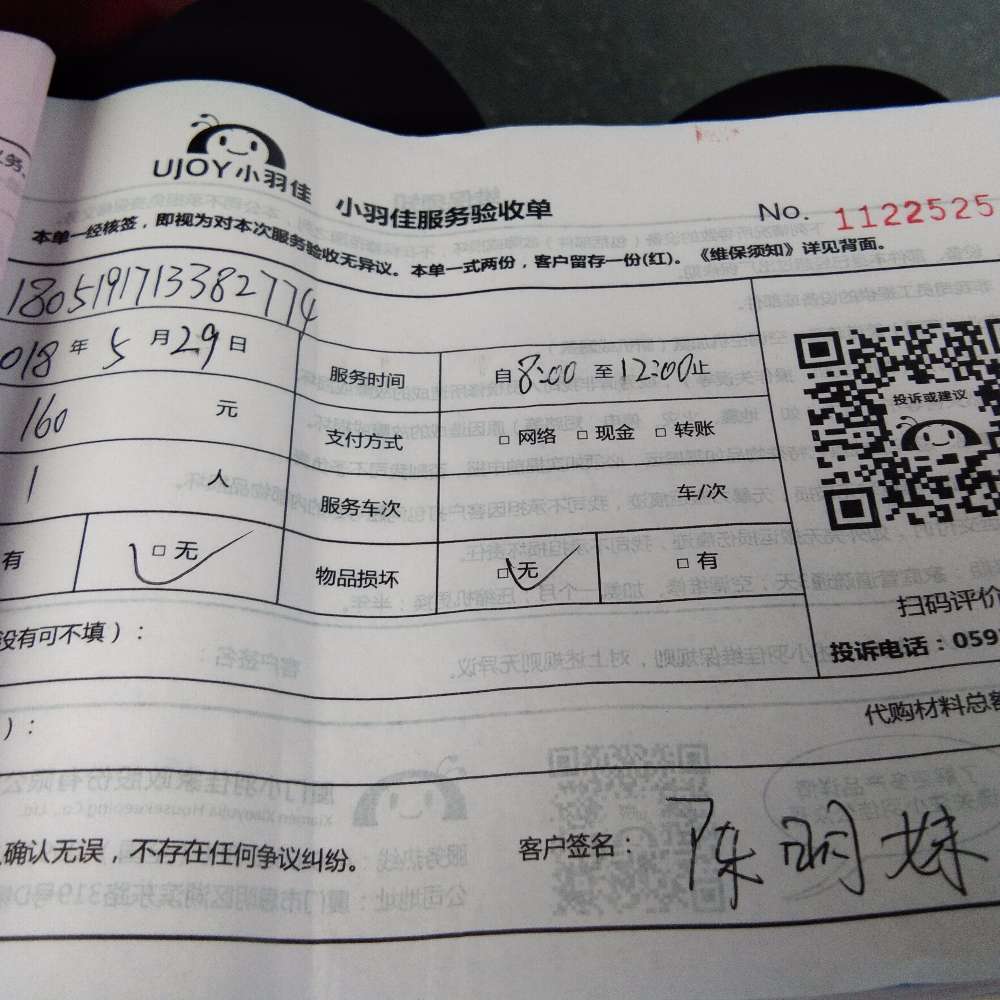 UJOY小羽佳
小羽佳服务验收单
No. 1122525
本单一经核签，即视为对本次服务验收无异议。本单一式两份，客户留存一份(红)。《维保须知》详见背面。
180519171338277 4
018 年 5 月 29 日
服务时间 自 8:00 至 12:00 止
160 元
支付方式 □ 网络 □ 现金 □ 转账
投诉或建议
1 人
服务车次 车/次
有 □ 无
物品损坏 □ 无 □ 有
扫码评价
没有可不填）：
投诉电话：059
）：
代购材料总
确认无误，不存在任何争议纠纷。
客户签名：陈明妹